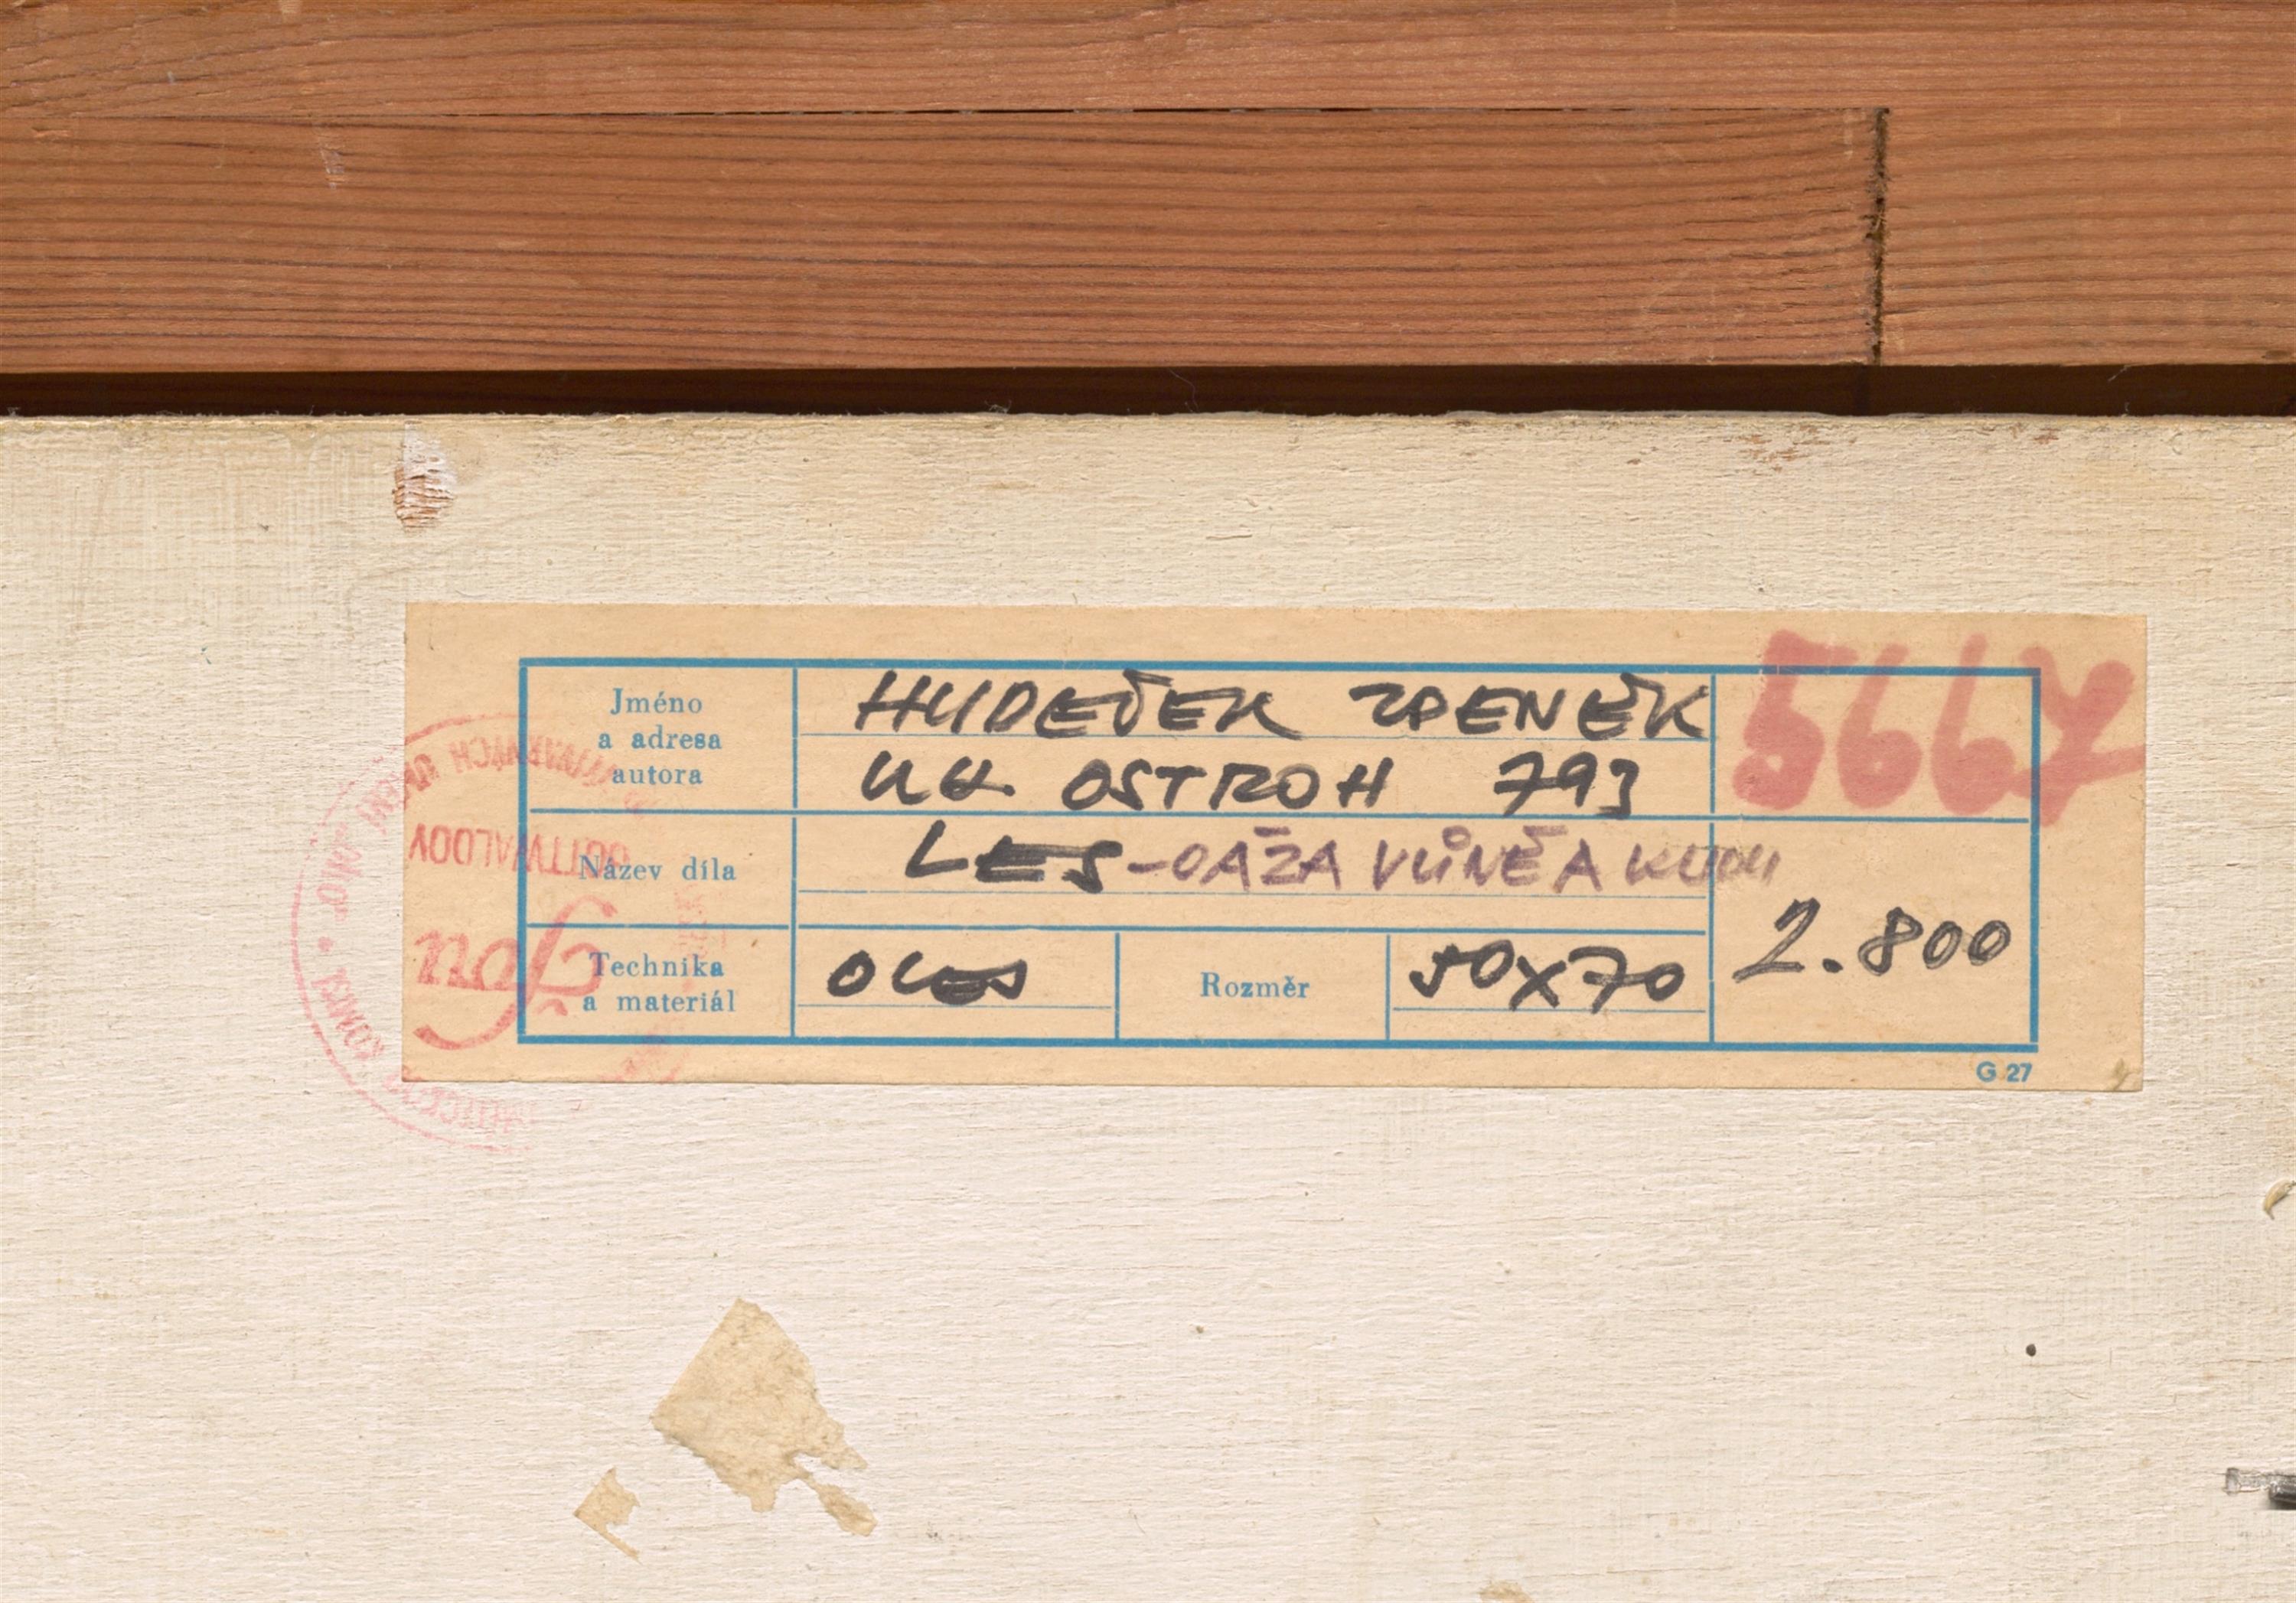 Jméno
a adresa
autora
HUDEČEK ZDENĚK
UH. OSTROH 793
5667
Název díla
LES - OÁZA VŮNĚ A KLIDU
2.800
Technika
a materiál
OLEJ
Rozměr
50x70
G 27
VÝTVARNÝCH
GOTTWALDOV
KOMISE